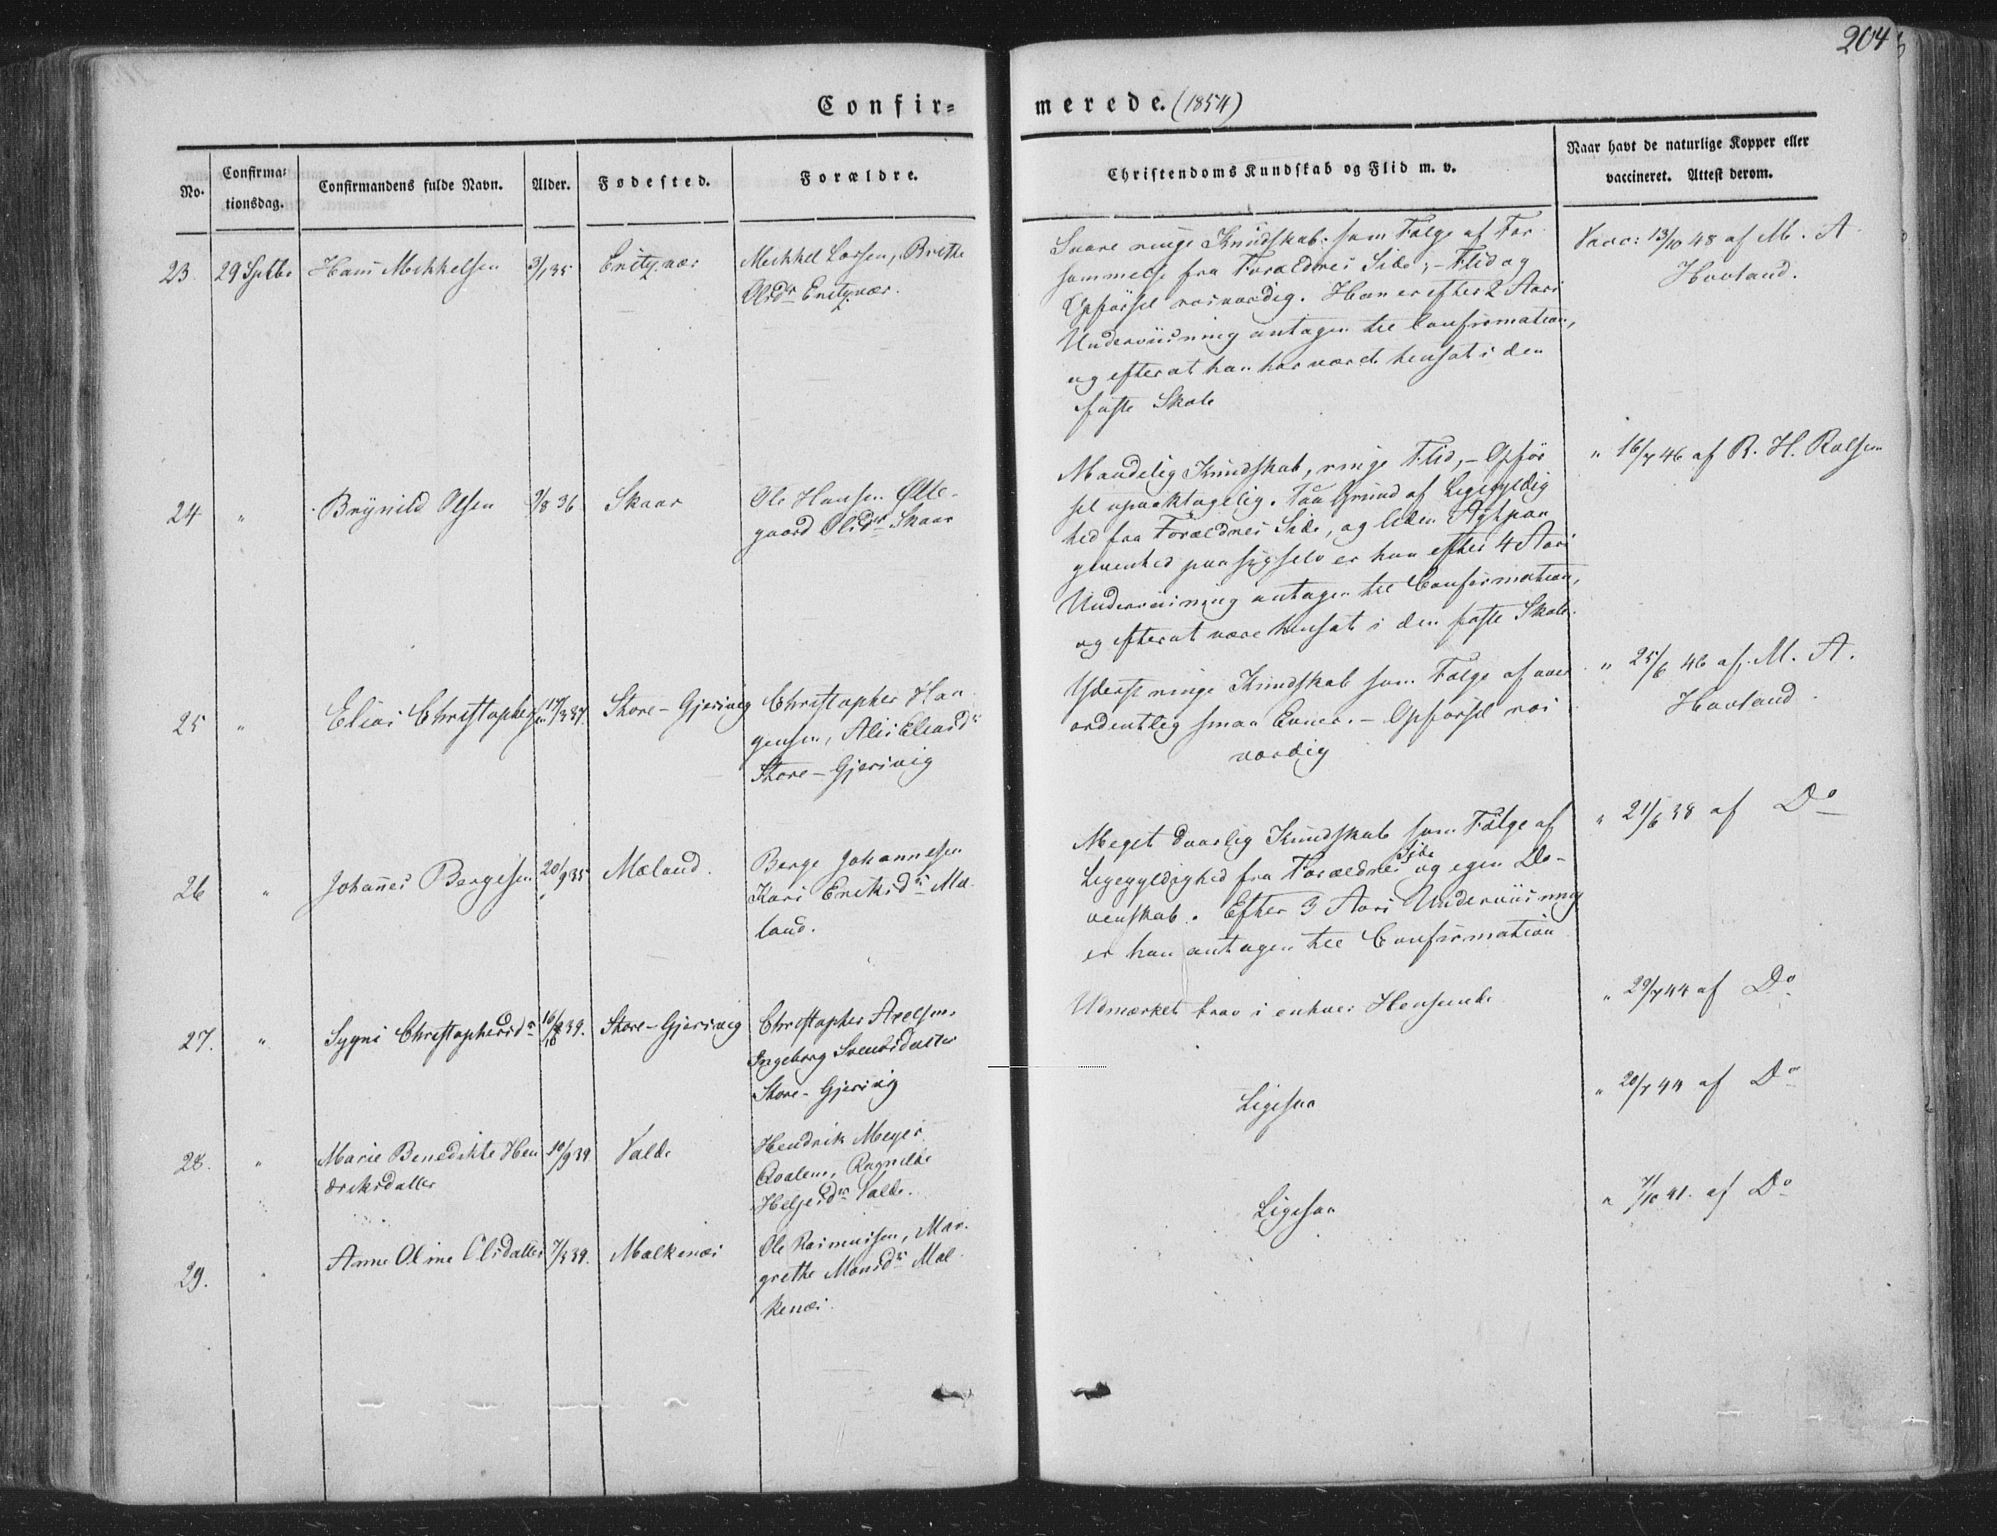 204
Confir=
merede. (1854)
No.
Confirma=
tionsdag.
Confirmandens fulde Navn.
Alder.
Fødested.
Forældre.
Christendoms Kundskab og Flid m. v.
Naar havt de naturlige Kopper eller
vaccineret. Attest derom.
23. 29 Septbr Hans Mickkelsen 3/1 35
Mickhel Larsen, Brithe
Olsdr
Svare ringe Kundskab, som Følge af For
sømmelse fra Forældres Side, – Flid og
Opførsel rosværdig. Han er efter 2 Aars
Underviisning antagen til Confirmation,
og efterat han har været hensat i den
faste Skole
Vacc: 13/10 48 af M. A.
Hovland.
24 " Brynild Olsen 9/8 36 Skaar
Ole Hansen Ølle-
gaard Olsdr Skaar
Maadelig Kundskab, ringe Flid, – Opfør
sel upaaklagelig. Paa Grund af Ligegyldig
hed fra Forældres Side, og liden Agtpaa
givenhed paa sig selv er han efter 4 Aars
Underviisning antagen til Confirmation,
og efterat være hensat i den faste Skole.
" 16/7 46 af R. H. Rolfsen
25 " Elias Christophers 17/3 37. Store-Gjersvig
Christopher Han
gensen, Alis Eliasdr
Store-Gjersvig
Yderst ringe Kundskab som Følge af over
ordentlig smaa Evner. – Opførsel ros
værdig
" 25/6 46 af M. A.
Hovland.
26 " Johanes Bergesen 20/9 35 Mæland.
Berge Johannesen
Kari Eriksdr Mæ
land.
Meget daarlig Kundskab som Følge af
Ligegyldighed fra Forældres Side og egen Do-
venskab. Efter 3 Aars Underviisning
er han antagen til Confirmation
" 21/6 38 af Do
27. " Sygni Christophersdr 16/ 39. Store-Gjersvig
Christopher Axelsen,
Ingeborg Svendsdatter
Store-Gjersvig
Udmærket brav i enhver Henseende
" 29/7 44 af Do
28. " Marie Benedikte Hen
driksdatter
10/9 39 Valde
Hendrik Meyer
Qvalen, Ragnilde
Helgesdr Valde.
Ligesaa
" 20/7 44 af Do
29. " Anne Oline Olsdatter 7/3 39. Malkenæs
Ole Rasmussen, Mar
grethe Monsdr Mal
kenæs.
Ligesaa
" 7/10 41. af Do